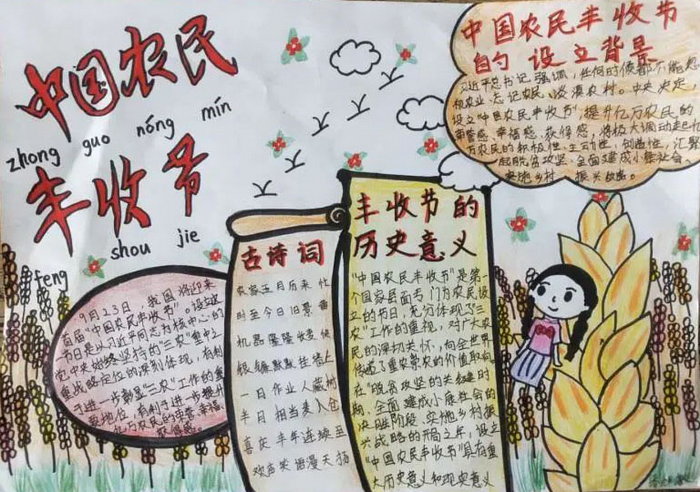 中国农民
zhong guo nóng mín
丰收节
feng shou jie
中国农民丰收节
的 设立背景
习近平总书记强调，任何时候都不能忽
视农业、忘记农民、淡漠农村。中央决定
设立"中国农民丰收节"，提升亿万农民的
荣誉感、幸福感、获得感，将极大调动起
亿万农民的积极性、主动性、创造性，汇聚
起脱贫攻坚、全面建成小康社会
乡村 振兴
9月23日，我国将迎来
首届"中国农民丰收节"。设立
节日是以习近平同志为核心的
党中央始终坚持的"三农"重中之
重战略定位的深刻体现，有利
于进一步彰显"三农"工作的重
要地位，有利于进一步提升
亿万农民的荣誉
古诗词
农家五月历来忙
时至今日旧景
机器隆隆收麦
一日作业人
半日相当麦入仓
喜庆丰年连续至
欢声笑语漫天扬
丰收节的
历史意义
"中国农民丰收节"是第一
个国家层面专门为农民设
立的节日，充分体现了三
农"工作的重视，对广大农
民的深切关怀，向全世界
传递了重农崇农的价值取向
在"脱贫攻坚的关键时
期，全面建成小康社会的
决胜阶段，实施乡村振
兴战略的开局之年，设立
"中国农民丰收节"具有重
大历史意义和现实意义